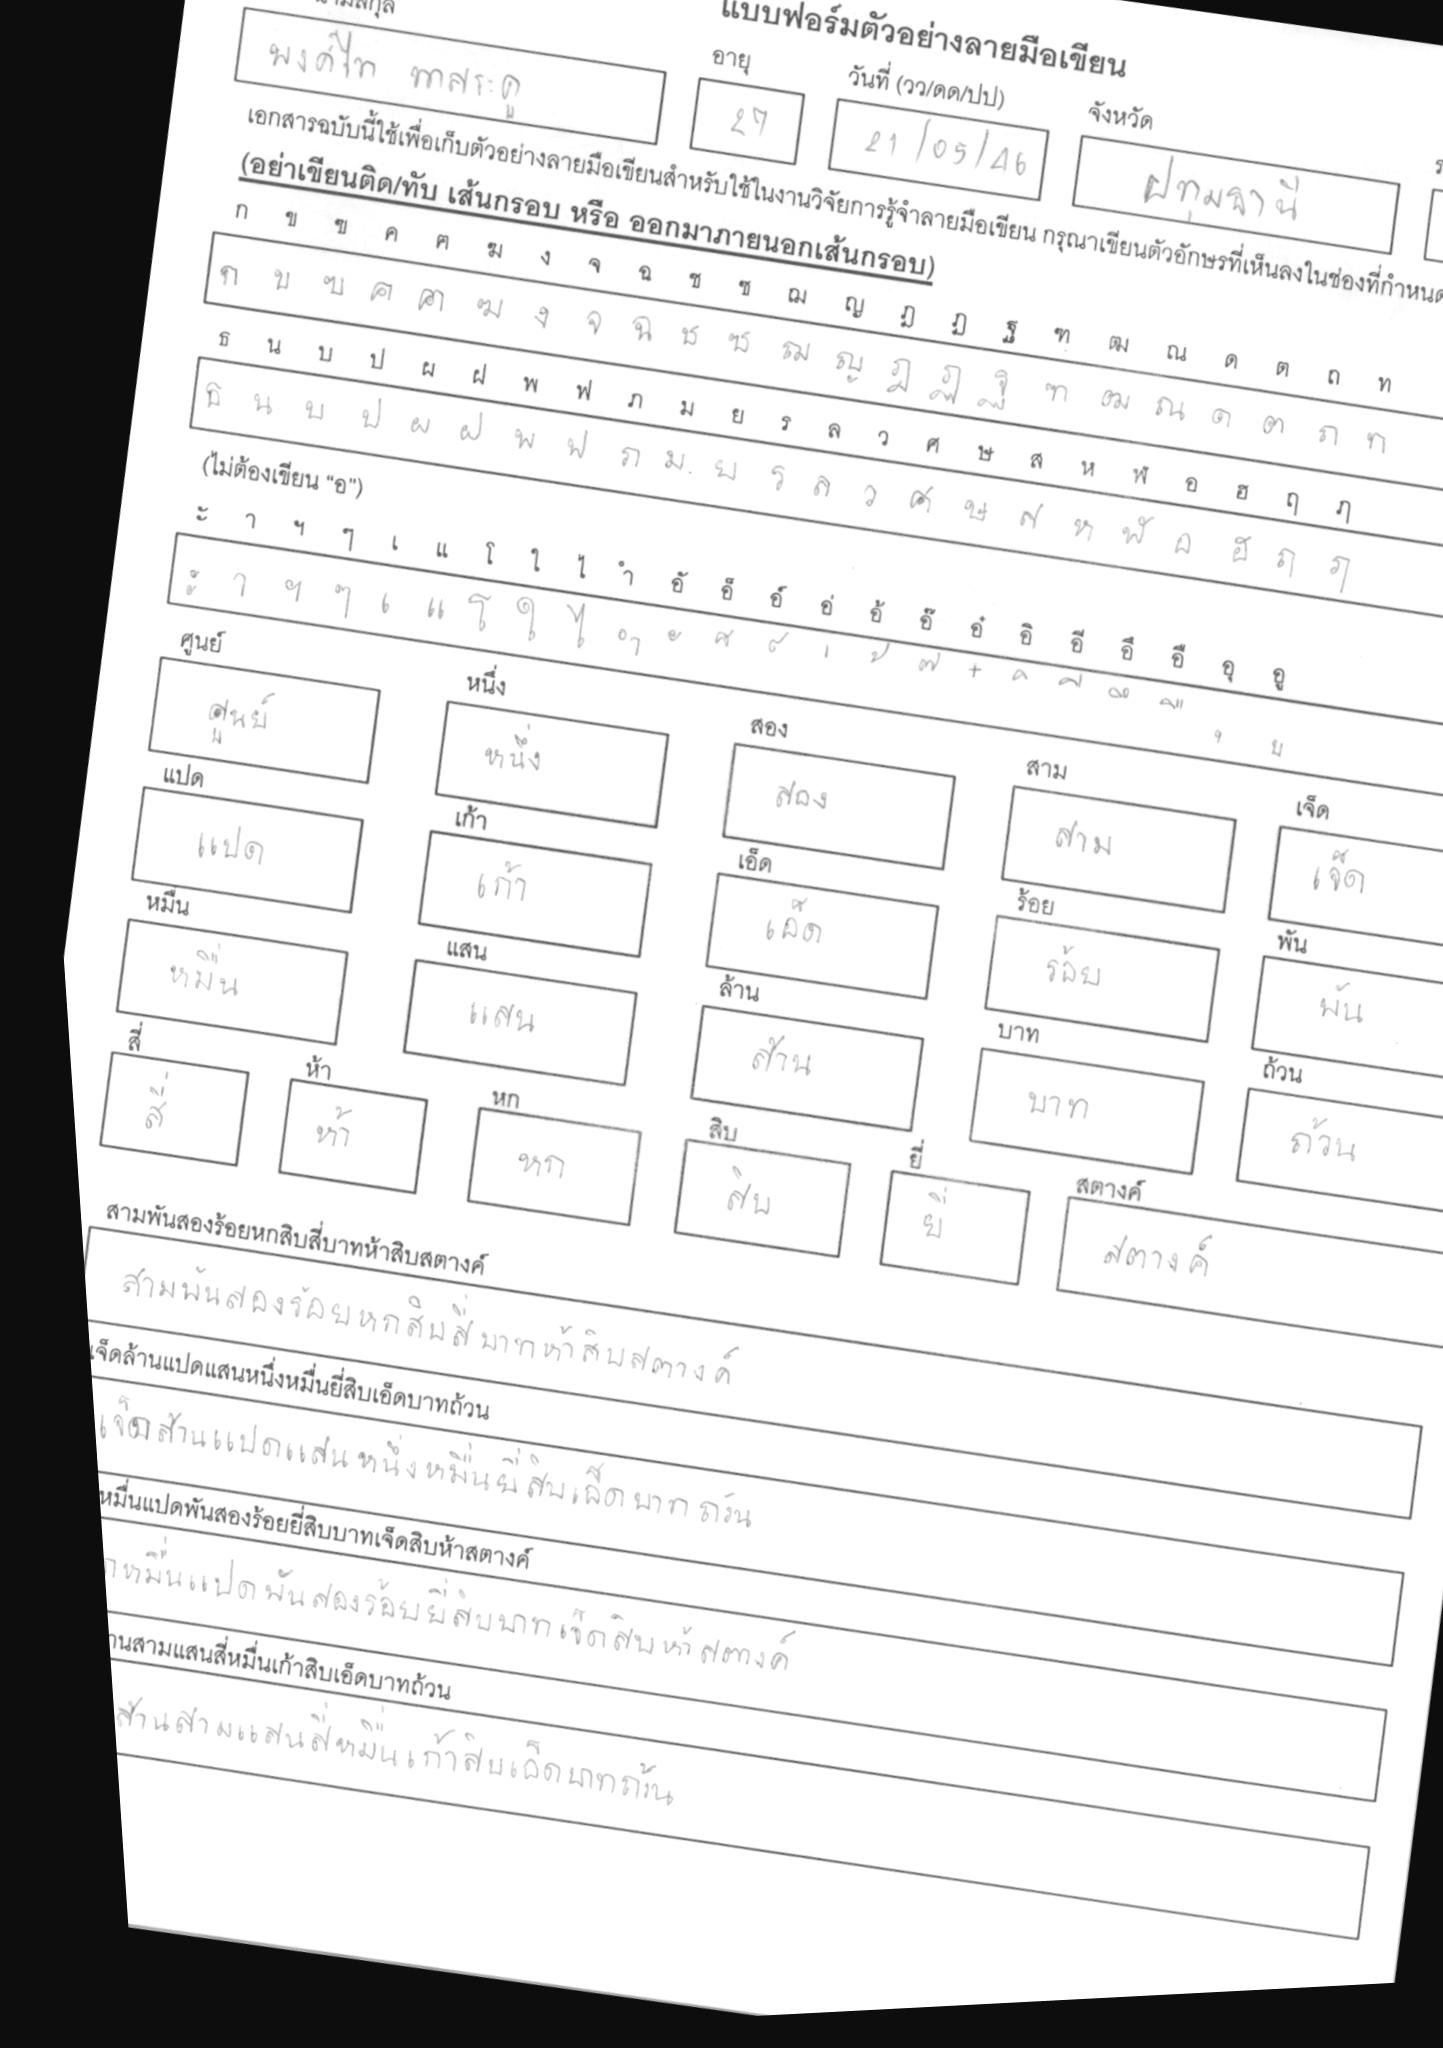 แบบฟอร์มตัวอย่างลายมือเขียน
อายุ วันที่ (วว/ดด/ปป) จังหวัด
27 21/05/46 ปทุมธานี
เอกสารฉบับนี้ใช้เพื่อเก็บตัวอย่างลายมือเขียนสำหรับใช้ในงานวิจัยการรู้จำลายมือเขียน กรุณาเขียนตัวอักษรที่เห็นลงในช่องที่กำหนด
(อย่าเขียนติด/ทับ เส้นกรอบ หรือ ออกมาภายนอกเส้นกรอบ)
ก ข ฃ ค ฅ ฆ ง จ ฉ ช ซ ฌ ญ ฎ ฏ ฐ ฑ ฒ ณ ด ต ถ ท
ก ข ฃ ค ฅ ฆ ง จ ฉ ช ซ ฌ ญ ฎ ฏ ฐ ฑ ฒ ณ ด ต ถ ท
ธ น บ ป ผ ฝ พ ฟ ภ ม ย ร ล ว ศ ษ ส ห ฬ อ ฮ ฤ ฦ
ธ น บ ป ผ ฝ พ ฟ ภ ม ย ร ล ว ศ ษ ส ห ฬ อ ฮ ฤ ฦ
(ไม่ต้องเขียน "อ")
ะ า ฯ ๆ เ แ โ ใ ไ ำ อั อ็ อ์ อ่ อ้ อ๊ อ๋ อิ อี อึ อื อุ อู
ะ า ฯ ๆ เ แ โ ใ ไ ำ ั ็ ์ ่ ้ ๊ ๋ ิ ี ึ ื ุ ู
ศูนย์ หนึ่ง สอง สาม เจ็ด
ศูนย์ หนึ่ง สอง สาม เจ็ด
แปด เก้า เอ็ด ร้อย พัน
แปด เก้า เอ็ด ร้อย พัน
หมื่น แสน ล้าน บาท ถ้วน
หมื่น แสน ล้าน บาท ถ้วน
สี่ ห้า หก สิบ ยี่ สตางค์
สี่ ห้า หก สิบ ยี่ สตางค์
สามพันสองร้อยหกสิบสี่บาทห้าสิบสตางค์
สามพันสองร้อยหกสิบสี่บาทห้าสิบสตางค์
เจ็ดล้านแปดแสนหนึ่งหมื่นยี่สิบเอ็ดบาทถ้วน
เจ็ดล้านแปดแสนหนึ่งหมื่นยี่สิบเอ็ดบาทถ้วน
หมื่นแปดพันสองร้อยยี่สิบบาทเจ็ดสิบห้าสตางค์
กหมื่นแปดพันสองร้อยยี่สิบบาทเจ็ดสิบห้าสตางค์
านสามแสนสี่หมื่นเก้าสิบเอ็ดบาทถ้วน
ล้านสามแสนสี่หมื่นเก้าสิบเอ็ดบาทถ้วน